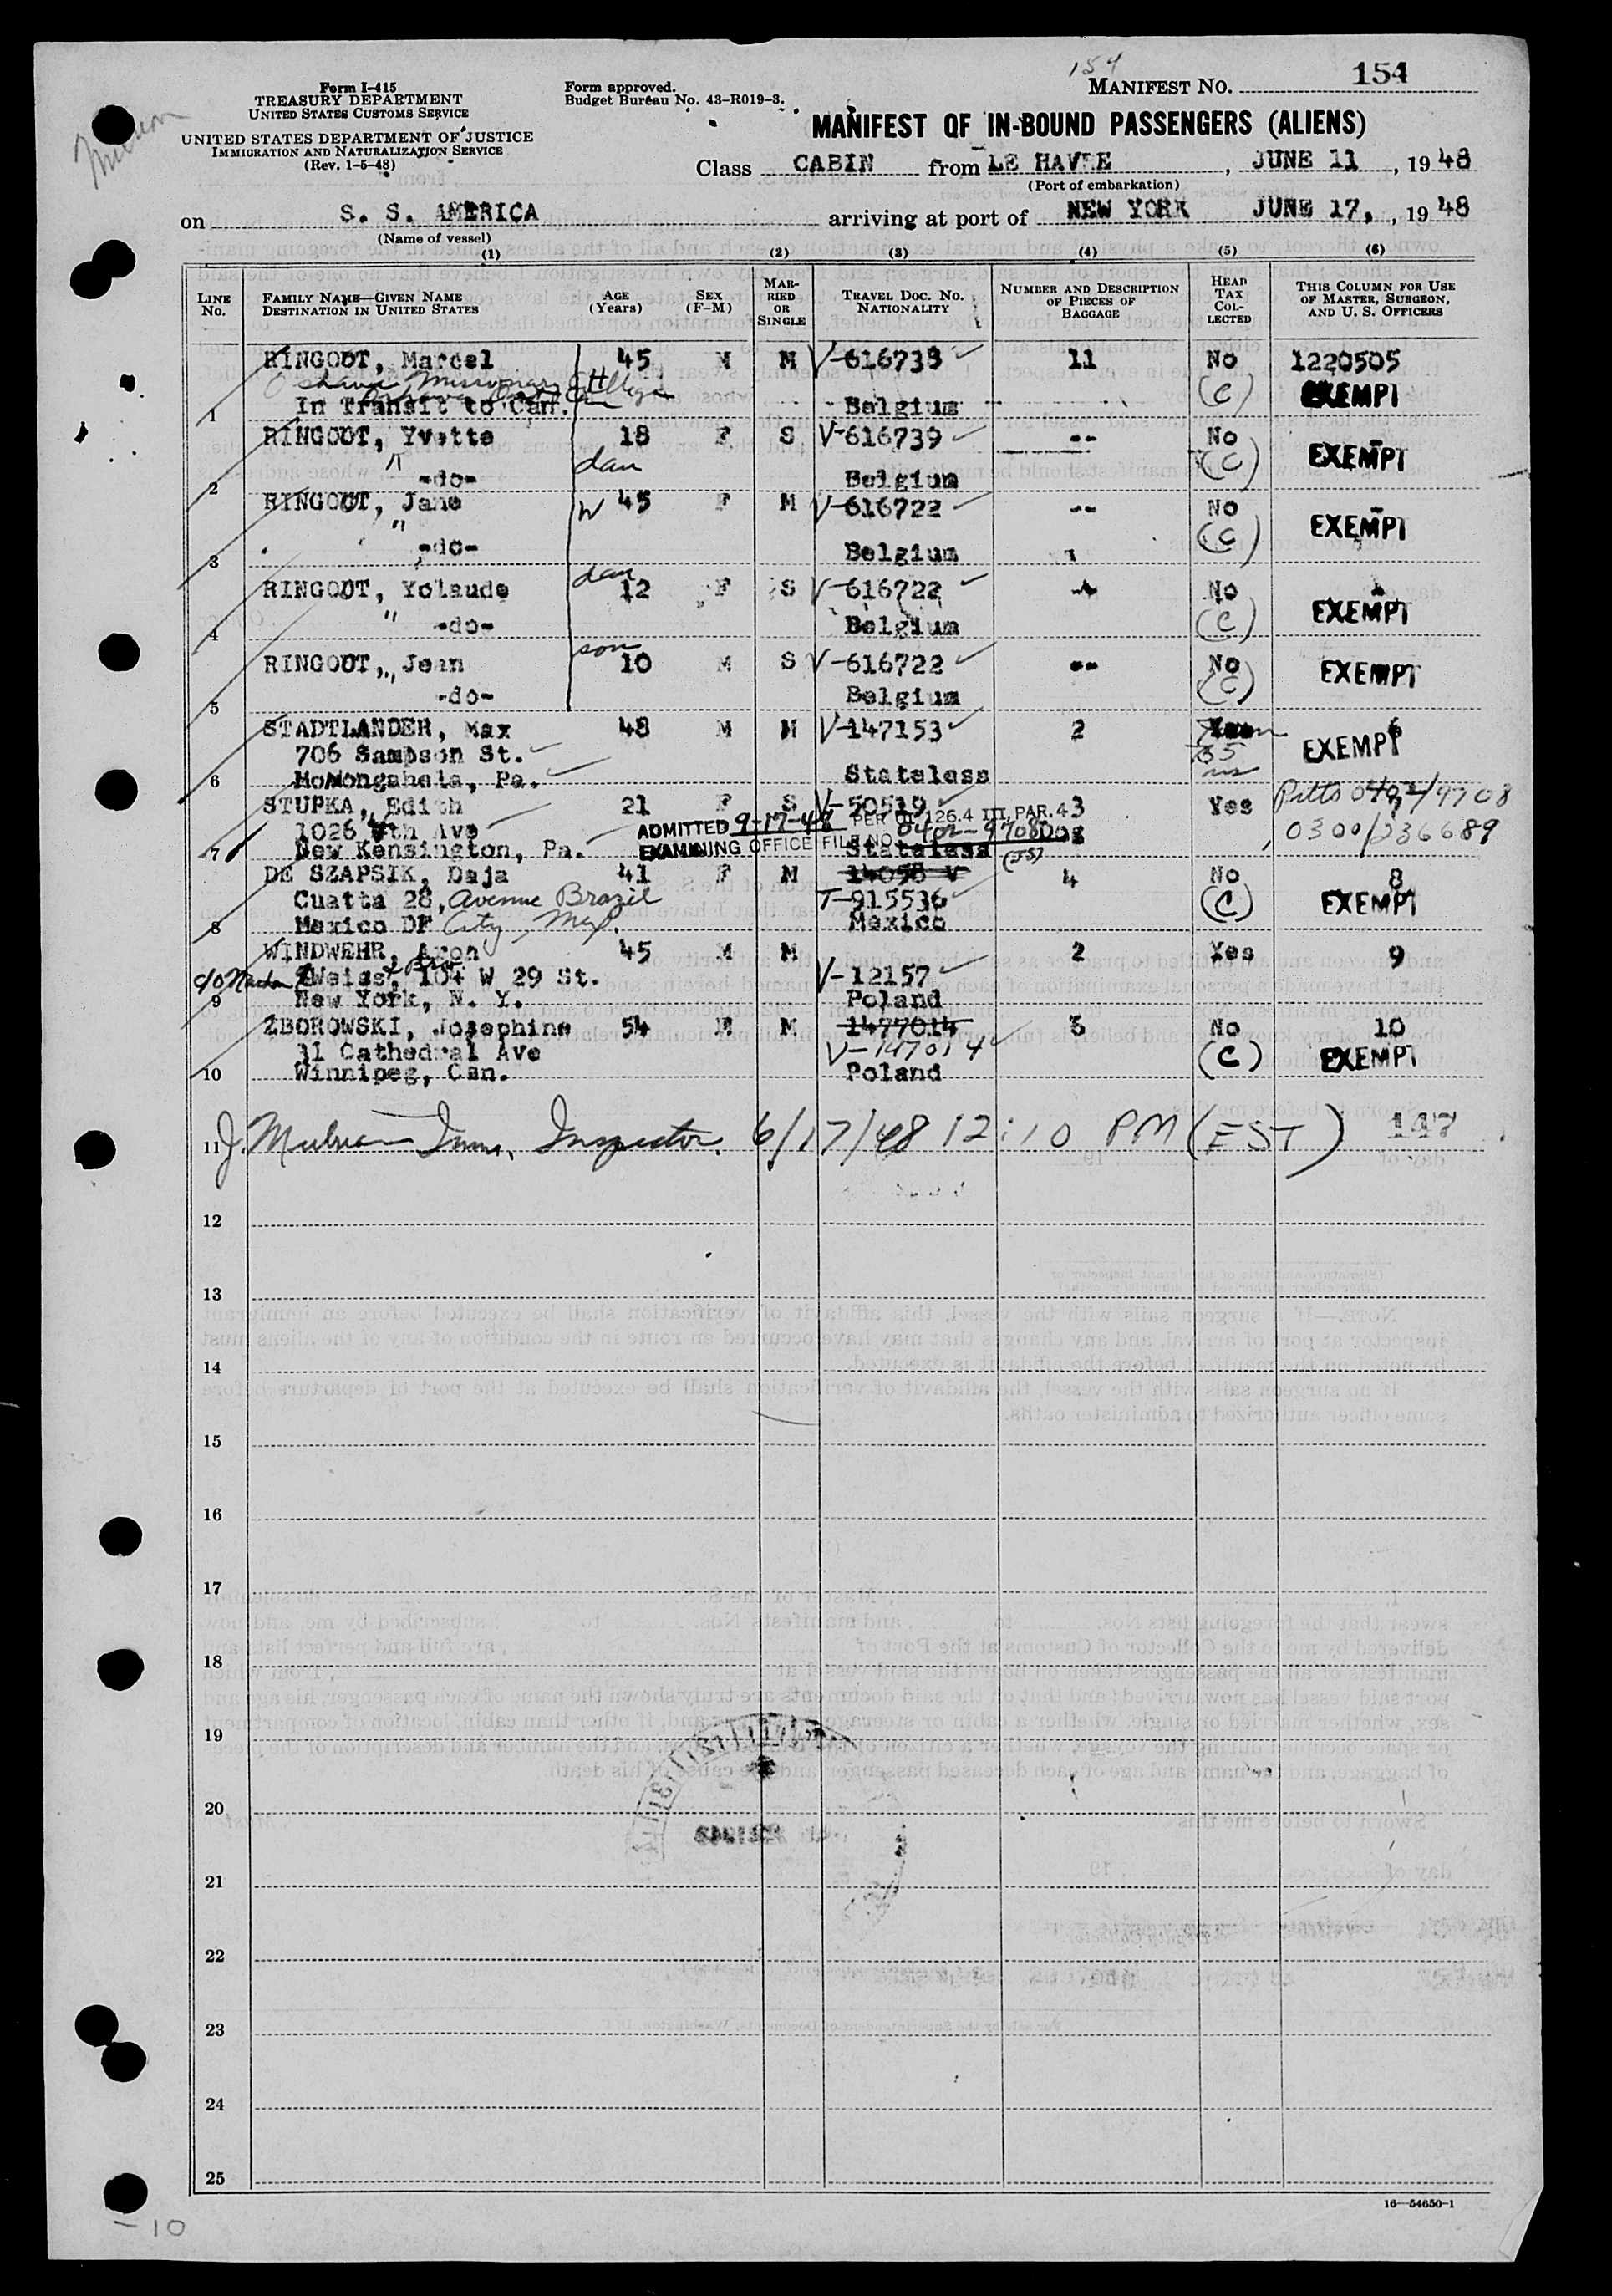 154
MANIFEST NO. 154
Form I-415
TREASURY DEPARTMENT
UNITED STATES CUSTOMS SERVICE
UNITED STATES DEPARTMENT OF JUSTICE
IMMIGRATION AND NATURALIZATION SERVICE
(Rev. 1-5-48)
Form approved.
Budget Bureau No. 43-R019-3.
MANIFEST OF IN-BOUND PASSENGERS (ALIENS)
Class CABIN from LE HAVRE, JUNE 11, 1948
(Port of embarkation)
on S. S. AMERICA arriving at port of NEW YORK JUNE 17, , 1948
(Name of vessel)
(1) (2) (3) (4) (5) (6)
LINE No.
FAMILY NAME—GIVEN NAME
DESTINATION IN UNITED STATES
AGE (Years)
SEX (F-M)
MARRIED OR SINGLE
TRAVEL DOC. NO. NATIONALITY
NUMBER AND DESCRIPTION OF PIECES OF BAGGAGE
HEAD TAX COLLECTED
THIS COLUMN FOR USE OF MASTER, SURGEON, AND U. S. OFFICERS
RINGOOT, Marcel 45 M M V-616738 11 No 1220505
Missionary College
1 In Transit to Can. Belgium (C) EXEMPT
RINGOOT, Yvette 18 F S V-616739 -- No
" dau (C) EXEMPT
2 -do- Belgium
RINGOOT, Jane W 45 F M V-616722 -- No
" (C) EXEMPT
3 -do- Belgium
RINGOOT, Yolaude dau 12 F S V-616722 -- No
4 " -do- Belgium (C) EXEMPT
RINGOOT, Jean son 10 M S V-616722 -- No EXEMPT
" (C)
5 -do- Belgium
STADTLANDER, Max 48 M M V-147153 2 6
706 Sampson St. EXEMPT
6 MoNongahela, Pa. Stateless
STUPKA, Edith 21 F S V-50519 3 Yes Pitts 0402/9708
1026 4th Ave ADMITTED 9-17-48 PER OI 126.4 III, PAR. 4 0300/236689
EXAMINING OFFICE FILE NO. 0402-9708 Dog
7 New Kensington, Pa. Stateless (JS)
DE SZAPSIK, Daja 41 F M 14058 V 4 No 8
Cuatta 28, Avenue Brazil T-915536 (C) EXEMPT
8 Mexico DF City, Mex. Mexico
WINDWEHR, Aron 45 M M 2 Yes 9
c/o Weiss & Bro, 104 W 29 St. V-12157
9 New York, N. Y. Poland
ZBOROWSKI, Josephine 54 F M 1477014 No 10
31 Cathedral Ave V-147014 (C) EXEMPT
10 Winnipeg, Can. Poland
11 J. Imm. Inspector. 6/17/48 12:10 PM (EST) 147
12
13
14
15
16
17
18
19
20
21
22
23
24
25
16—54650-1
-10